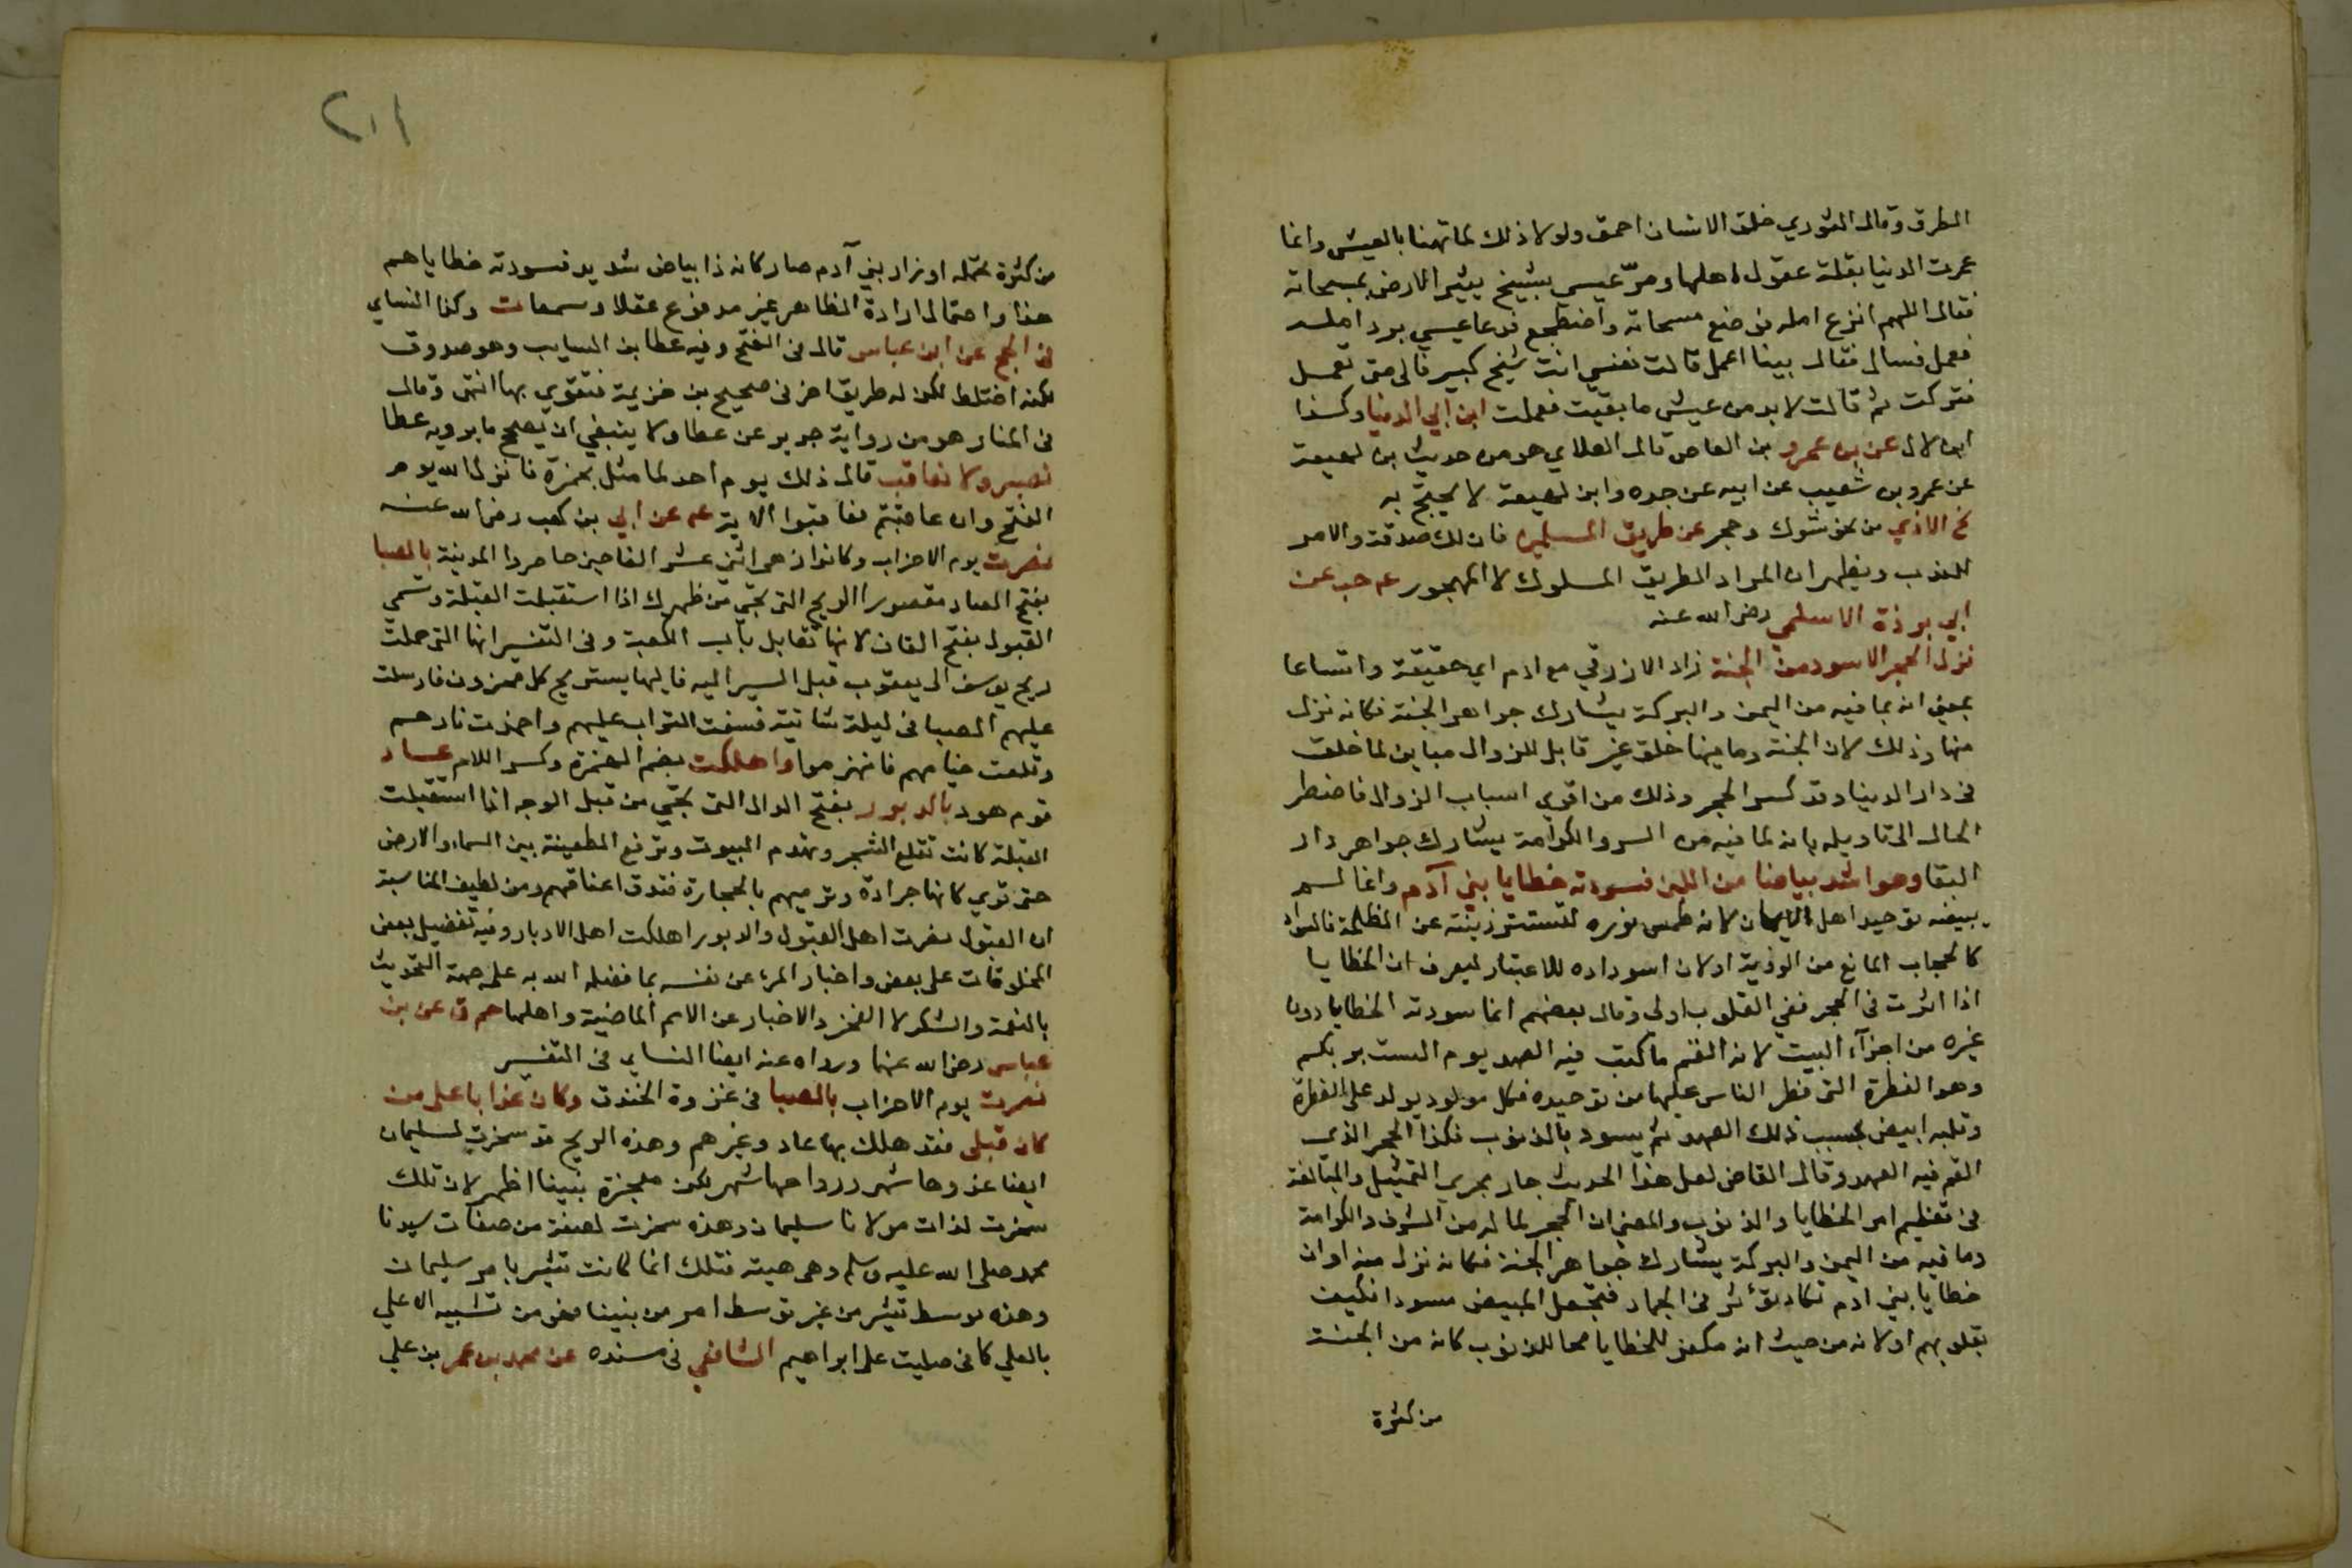 الطرق وقال الثوري خلق الانسان احمق ولولا ذلك لما تهنا بالعيش وانما
عمرت الدنيا بقلة عقول اهلها ومرّ عيسى بشيخ يثير الارض بمسحاته
فقال اللهم انزع امله فوضع مسحاته واضطجع فدعا عيسى برد امله
فعمل فسال فقال بينا اعمل قالت نفسي انت شيخ كبير فالى متى تعمل
فتركت ثم قالت لا بد من عيش ما بقيت فعملت ابن ابي الدنيا وكذا
ابن لال عن بن عمرو بن العاص قال العلاي هو من حديث بن لهيعة
عن عمرو بن شعيب عن ابيه عن جده وابن لهيعة لا يحتج به
نح الاذي من نحو شوك وحجر عن طريق المسلمين فان لك صدقة والامر
للندب ويظهر ان المراد الطريق المسلوك لا المهجور عه حب عن
ابي برزة الاسلمي رضي الله عنه
نزل الحجر الاسود من الجنة زاد الازرقي مع ادم اي حقيقة واتساعا
بمعنى انه بما فيه من اليمن والبركة يشارك جواهر الجنة فكانه نزل
منها وذلك لان الجنة وما فيها خلق غير قابل للزوال مباين لما خلق
في دار الدينا وقد كسر الحجر وذلك من اقوي اسباب الزوال فاضطر
الحال الى تاويله بانه لما فيه من السر والكرامة يشارك جواهر دار
البقا وهو اشد بياضا من اللبن فسودته خطايا بني آدم وانما لم
يبيضه توحيد اهل الايمان لانه طمس نوره لتستتر زينته عن الظلمة فالسواد
كالحجاب المانع من الروية او لان اسوداده للاعتبار ليعرف ان الخطايا
اذا اثرت في الحجر ففي القلوب اولى وقال بعضهم انما سودته الخطايا دون
غيره من اجزآء البيت لانه القم ما كتب فيه العهد يوم الست بربكم
وهو الفطرة التى فطر الناس عليها من توحيده فكل مولود يولد على الفطرة
وقلبه ابيض بحسب ذلك العهد ثم يسود بالذنوب فكذا الحجر الذي
القم فيه العهد وقال القاضي لعل هذا الحديث جار مجري التمثيل والمبالغة
فى تعظيم امر الخطايا والذنوب والمعنى ان الحجر لما له من الشرف والكرامة
وما فيه من اليمن والبركة يشارك جواهر الجنة فكانه نزل منه او ان
خطايا بني ادم تكاد تؤثر في الجماد فتجعل المبيض مسودا فكيف
بقلوبهم او لانه من حيث انه مكفر للخطايا محا للذنوب كانه من الجنة
من كثرة
٢٠١
من كثرة تحمله اوزار بني آدم صار كانه ذا بياض شديد فسودته خطاياهم
هذا واحتمال ارادة الظاهر غير مدفوع عقلا وسمعا ت وكذا النساي
فى الحج عن ابن عباس قال فى الفتح وفيه عطا بن السايب وهو صدوق
لكنه اختلط لكن له طريق اخر في صحيح بن خزيمة فتقوي بها انتهى وقال
فى المنار هو من رواية جرير عن عطا ولا ينبغي ان يصحح ما يرويه عطا
نصبر ولا نعاقب قال ذلك يوم احد لما مثل بحمزة فانزل الله يوم
الفتح وان عاقبتم فعاقبوا الاية عم عن ابي بن كعب رضي الله عنه
نصرت يوم الاحزاب وكانوا زهى اثنى عشر الفا حين حاصروا المدينة بالصبا
بفتح الصاد مقصورا الريح التى تجي من ظهرك اذا استقبلت القبلة وتسمي
القبول بفتح القاف لانها تقابل باب الكعبة وفى التفسير انها التى حملت
ريح يوسف الى يعقوب قبل السير اليه فاليها يستريح كل محزون فارسلت
عليهم الصبا في ليلة شاتية فسفت التراب عليهم واخمدت نارهم
وقلعت خيامهم فانهزموا واهلكت بضم الهمزة وكسر اللام عاد
قوم هود بالدبور بفتح الدال التى تجي من قبل الوجه اذا استقبلت
القبلة كانت تقلع الشجر وتهدم البيوت وترفع الظعينة بين السماء والارض
حتى تري كانها جرادة وترميهم بالحجارة فتدق اعناقهم ومن لطيف المناسبة
ان القبول نصرت اهل القبول والدبور اهلكت اهل الادبار وفيه تفضيل بعض
المخلوقات على بعض واخبار المرء عن نفسه بما فضله الله به على جهة التحديث
بالنعمة والشكر لا الفخر والاخبار عن الامم الماضية واهلها حم ق عن بن
عباس رضي الله عنهما ورواه عنه ايضا النساي فى التفسير
نصرت يوم الاحزاب بالصبا فى غزوة الخندق وكان عذابا على من
كان قبلى فقد هلك بها عاد وغيرهم وهذه الريح قد سخرت لسليمان
ايضا غدوها شهر ورواحها شهر لكن معجزة نبينا اظهر لان تلك
سخرت لذات مولانا سليمان وهذه سخرت لصفة من صفات سيدنا
محمد صلى الله عليه وسلم وهى هيبته فتلك انما كانت تسير بامر سليمان
وهذه تسير من غير توسط امر من نبينا فهو من تشبيه الاعلي
بالعلي كما في صليت على ابراهيم الشافعي في مسنده عن محمد بن عمر بن علي